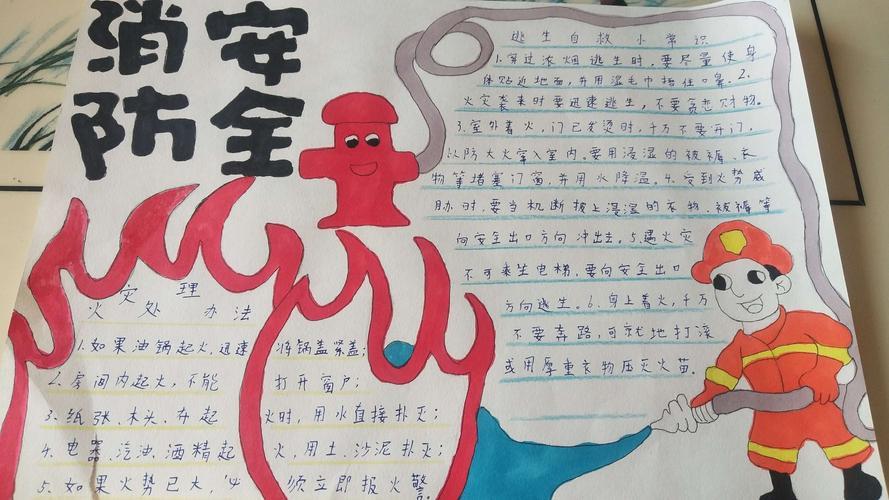 消 安
防 全
逃生自救小常识
1.穿过浓烟逃生时,要尽量使身
体贴近地面,并用湿毛巾捂住口鼻.2.
火灾袭来时要迅速逃生,不要贪恋财物。
3.室外着火,门已发烫时,千万不要开门,
以防大火窜入室内。要用浸湿的被褥、衣
物等堵塞门窗,并用水降温。4.受到火势威
胁时,要当机断披上浸湿的衣物、被褥等
向安全出口方向冲出去。5.遇火灾
不可乘坐电梯,要向安全出口
方向逃生。6.身上着火,千万
不要奔跑,可就地打滚
或用厚重衣物压灭火苗.
火灾处理
办法
1.如果油锅起火,迅速将锅盖紧盖;
2.房间内起火,不能打开窗户;
3.纸张、木头、布起火时,用水直接扑灭;
4.电器、汽油、酒精起火,用土、沙泥扑灭;
5.如果火势已大,必须立即报火警